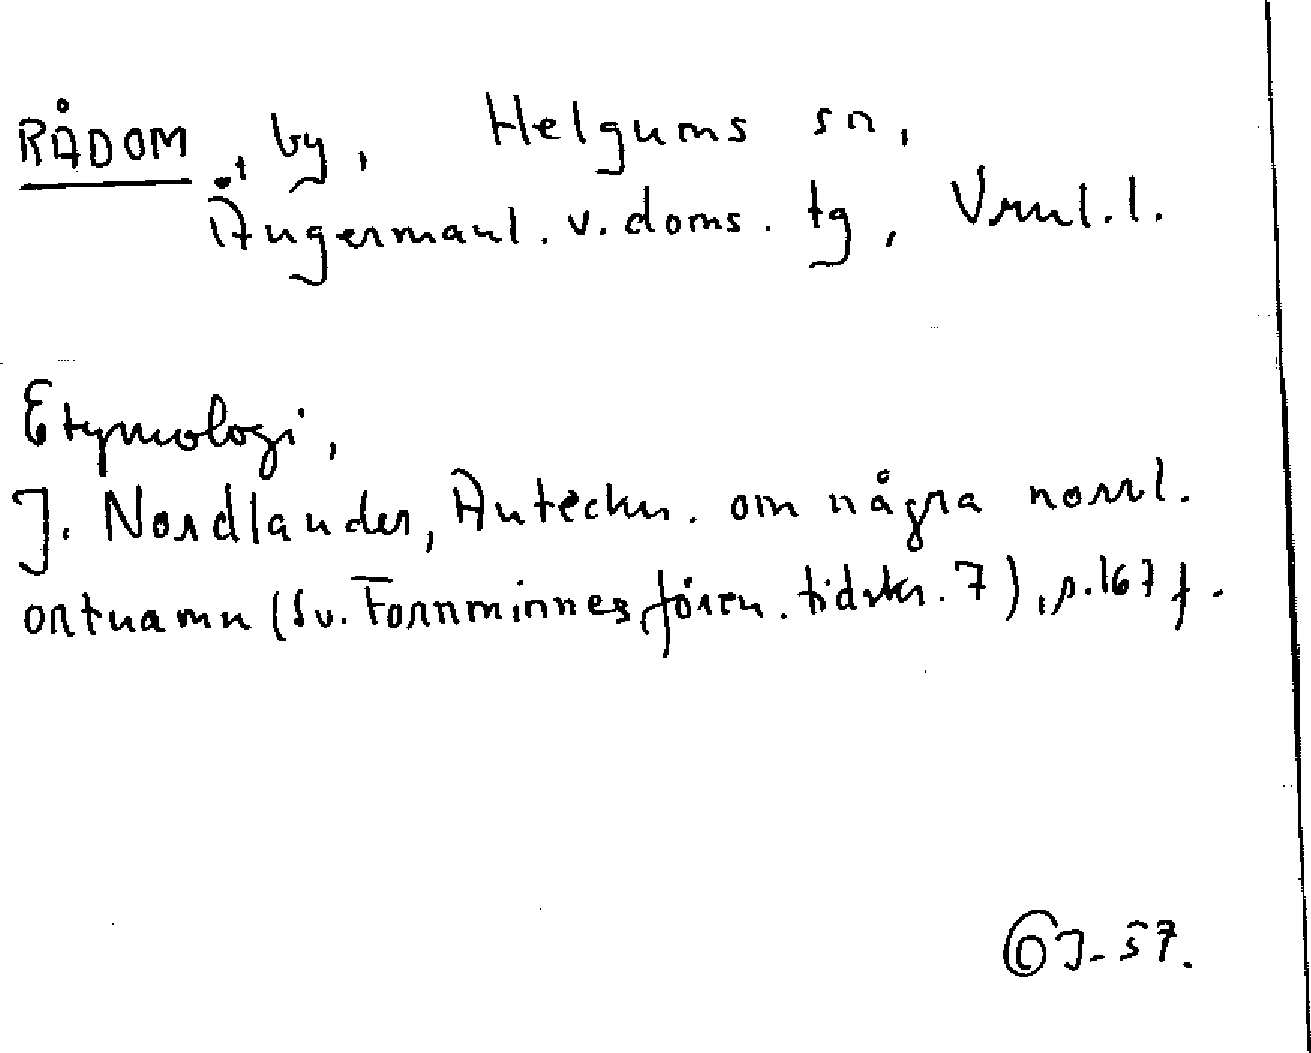 RÅDOM, by, Helgums sn,
Ångermanl. v. doms. tg, Vrnl. l.
Etymologi,
J. Nordlander, Anteckn. om några norrl.
ortnamn (Sv. Fornminnesfören. tidskr. 7), s. 167 f.
J-57.